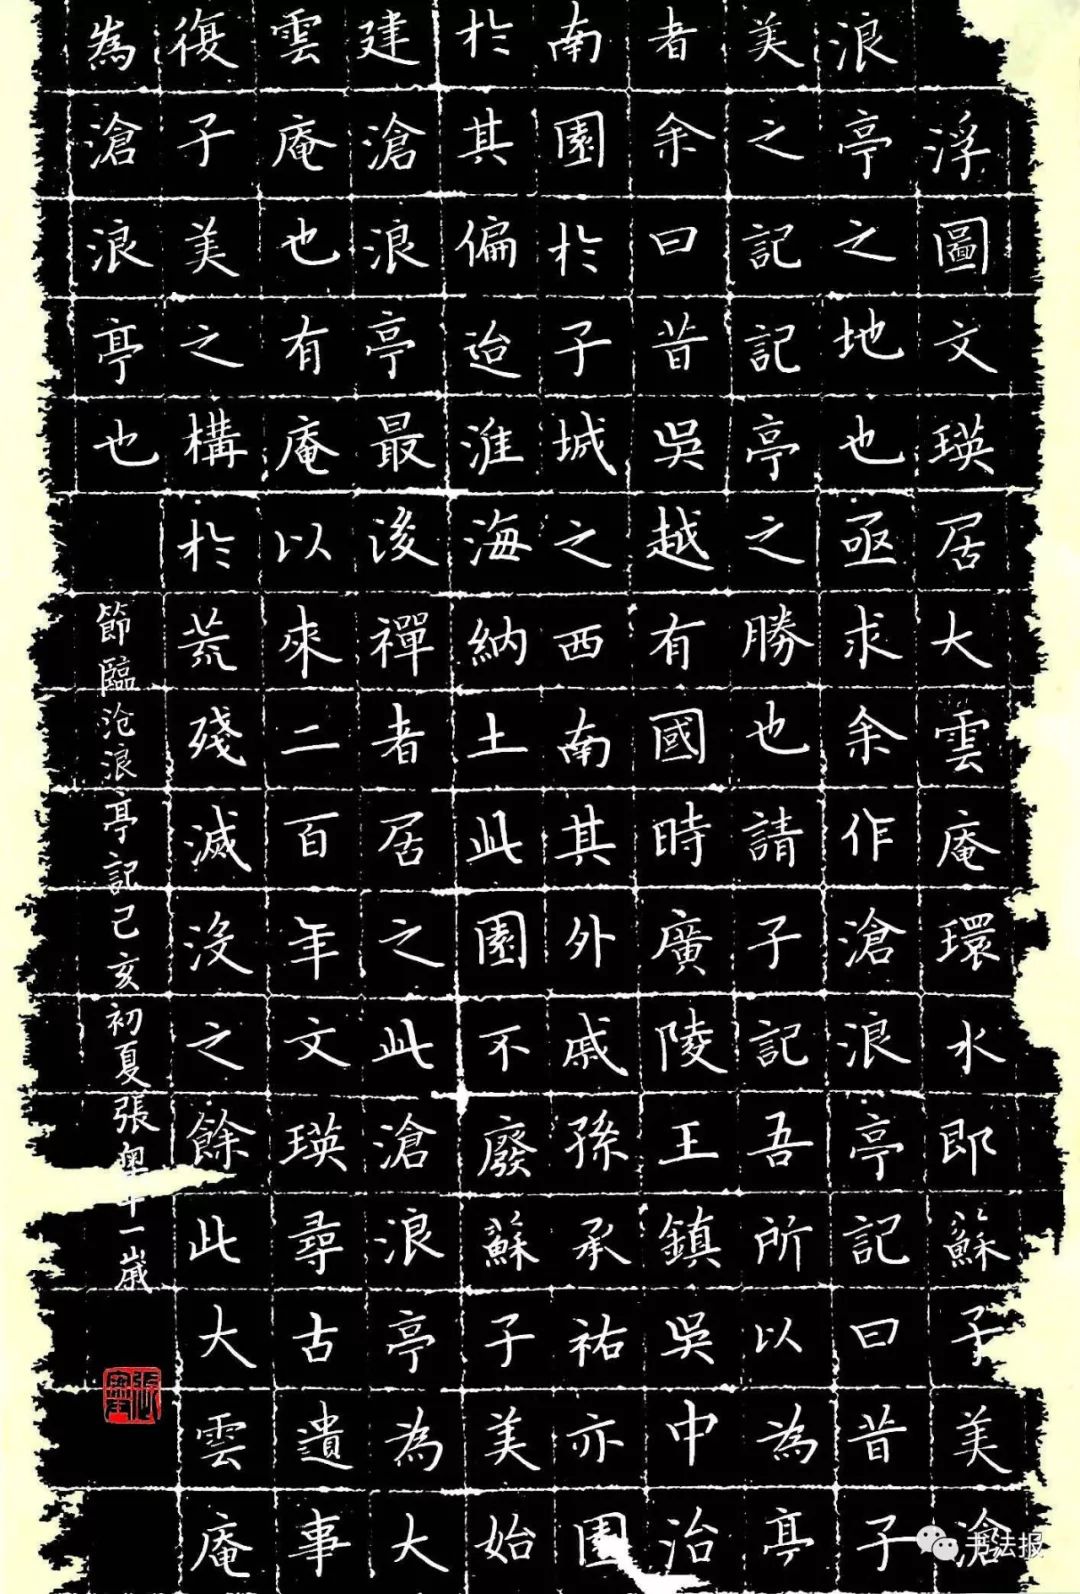 浮圖文瑛居大雲庵環水即蘇子美滄
浪亭之地也亟求余作滄浪亭記曰昔子
美之記記亭之勝也請子記吾所以為亭
者余曰昔吳越有國時廣陵王鎮吳中治
南園於子城之西南其外戚孫承祐亦園
於其偏迨淮海納土此園不廢蘇子美始
建滄浪亭最後禪者居之此滄浪亭為大
雲庵也有庵以來二百年文瑛尋古遺事
復子美之構於荒殘滅沒之餘此大雲庵
為滄浪亭也
節臨沧浪亭記己亥初夏張奧年十一歲
书法报